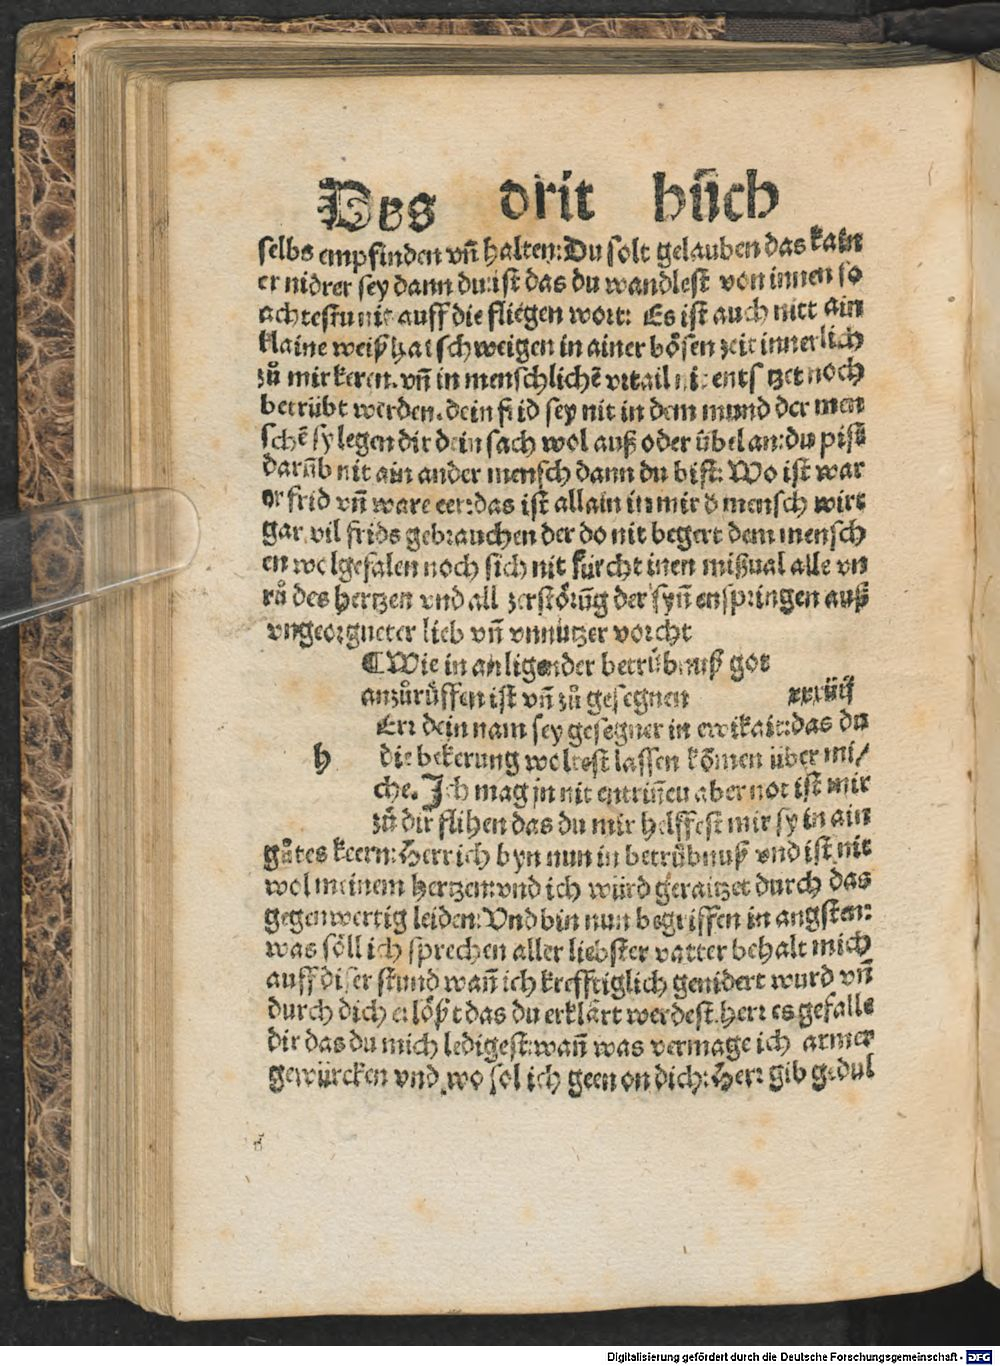 Das drit bůch
selbs empfinden vñ halten: Du solt gelauben das kain
er nidrer sey dann du: ist das du wandlest von innen so
achtestu nit auff die fliegen wort: Es ist auch nitt ain
klaine weißhait schweigen in ainer bösen zeit innerlich
zů mir keren. vñ in menschlichẽ vrtail nit entsetzet noch
betrübt werden. dein frid sey nit in dem mund der men
schẽ sy legen dir dein sach wol auß oder übel an: du pist
darũb nit ain ander mensch dann du bist: Wo ist war
er frid vñ ware eer: das ist allain in mir d mensch wirt
gar vil frids gebrauchen der do nit begert dem mensch
en wolgefalen noch sich nit fürcht inen mißual alle vn
rů des hertzen vnd all zerstörũg der syñ enspringen auß
vngeorgneter lieb vñ vnnützer vorcht
¶ Wie in anligender betrübnuß got
anzůrüffen ist vñ zů gesegnen xxxiiij
h Err dein nam sey gesegnet in ewikait: das du
die bekerung woltest lassen kõmen über mi/
che. Ich mag jn nit entriñen aber not ist mir
zů dir flihen das du mir helffest mir sy in ain
gůtes keern: Herr ich byn nun in betrübnuß vnd ist nit
wol meinem hertzen: vnd ich würd geraitzet durch das
gegenwertig leiden: Vnd bin nun begriffen in angsten:
was söll ich sprechen aller liebster vatter behalt mich
auff diser stund wañ ich krefftiglich genidert wurd vñ
durch dich erlößt das du erklärt werdest. herr es gefalle
dir das du mich ledigest: wañ was vermage ich armer
gewürcken vnd wo sol ich geen on dich: Herr gib gedul
Digitalisierung gefördert durch die Deutsche Forschungsgemeinschaft - DFG